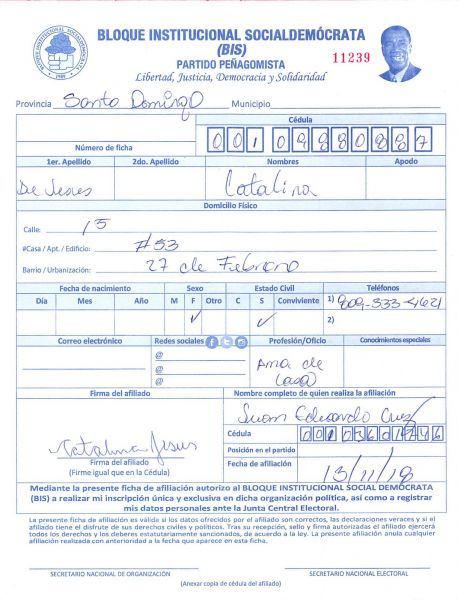 BLOQUE INSTITUCIONAL SOCIALDEMÓCRATA
(BIS)
PARTIDO PEÑAGOMISTA
Libertad, Justicia, Democracia y Solidaridad
11239
Provincia Santo Domingo Municipio
Cédula
Número de ficha
1er. Apellido 2do. Apellido Nombres Apodo
De Jesus Catalina
Domicilio Físico
Calle: 15
#Casa / Apt. / Edificio: #53
Barrio / Urbanización: 27 de Febrero
Fecha de nacimiento Sexo Estado Civil Teléfonos
Día Mes Año M F Otro C S Conviviente 1) 809-333-4621
✓ ✓ 2)
Correo electrónico Redes sociales Profesión/Oficio Conocimientos especiales
@ Ama de
@ Casa
@
Firma del afiliado Nombre completo de quien realiza la afiliación
Juan Eduardo Cruz
Cédula
Catalina Jesus
Posición en el partido
Firma del afiliado
(Firme igual que en la Cédula)
Fecha de afiliación 13/11/18
Mediante la presente ficha de afiliación autorizo al BLOQUE INSTITUCIONAL SOCIAL DEMOCRATA
(BIS) a realizar mi inscripción única y exclusiva en dicha organización política, así como a registrar
mis datos personales ante la Junta Central Electoral.
La presente ficha de afiliación es válida si los datos ofrecidos por el afiliado son correctos, las declaraciones veraces y si el
afiliado tiene el disfrute de sus derechos civiles y políticos. Tras su recepción, sello y firma autorizadas el afiliado ejercerá
todos los derechos y los deberes estatutariamente sancionados, de acuerdo a la ley. La presente afiliación anula cualquier
afiliación realizada con anterioridad a la fecha que aparece en esta ficha.
SECRETARIO NACIONAL DE ORGANIZACIÓN SECRETARIO NACIONAL ELECTORAL
(Anexar copia de cédula del afiliado)